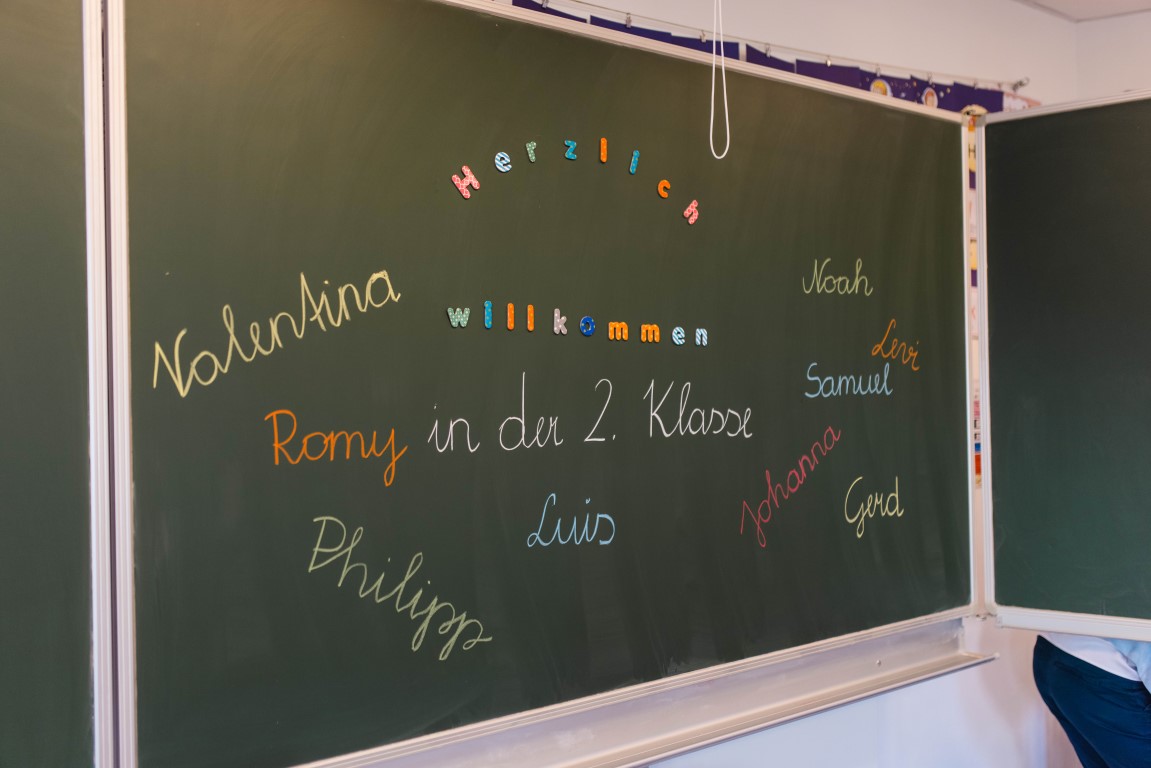 Herzlich
willkommen
Valentina
Noah
Levi
Samuel
Romy
in der 2. Klasse
Johanna
Gerd
Luis
Philipp